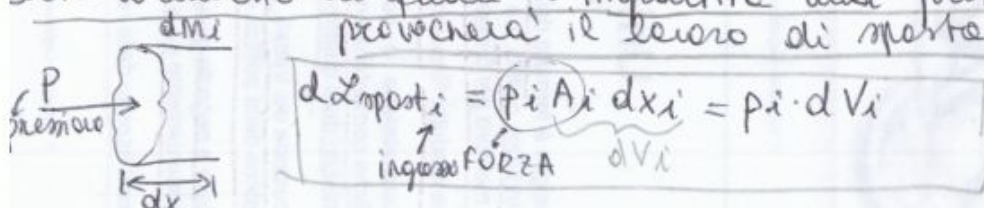 dmi
provocherà il lavoro di sposta
P
pressione
dLsposti = pi Ai dxi = pi · dVi
ingresso FORZA dVi
dx